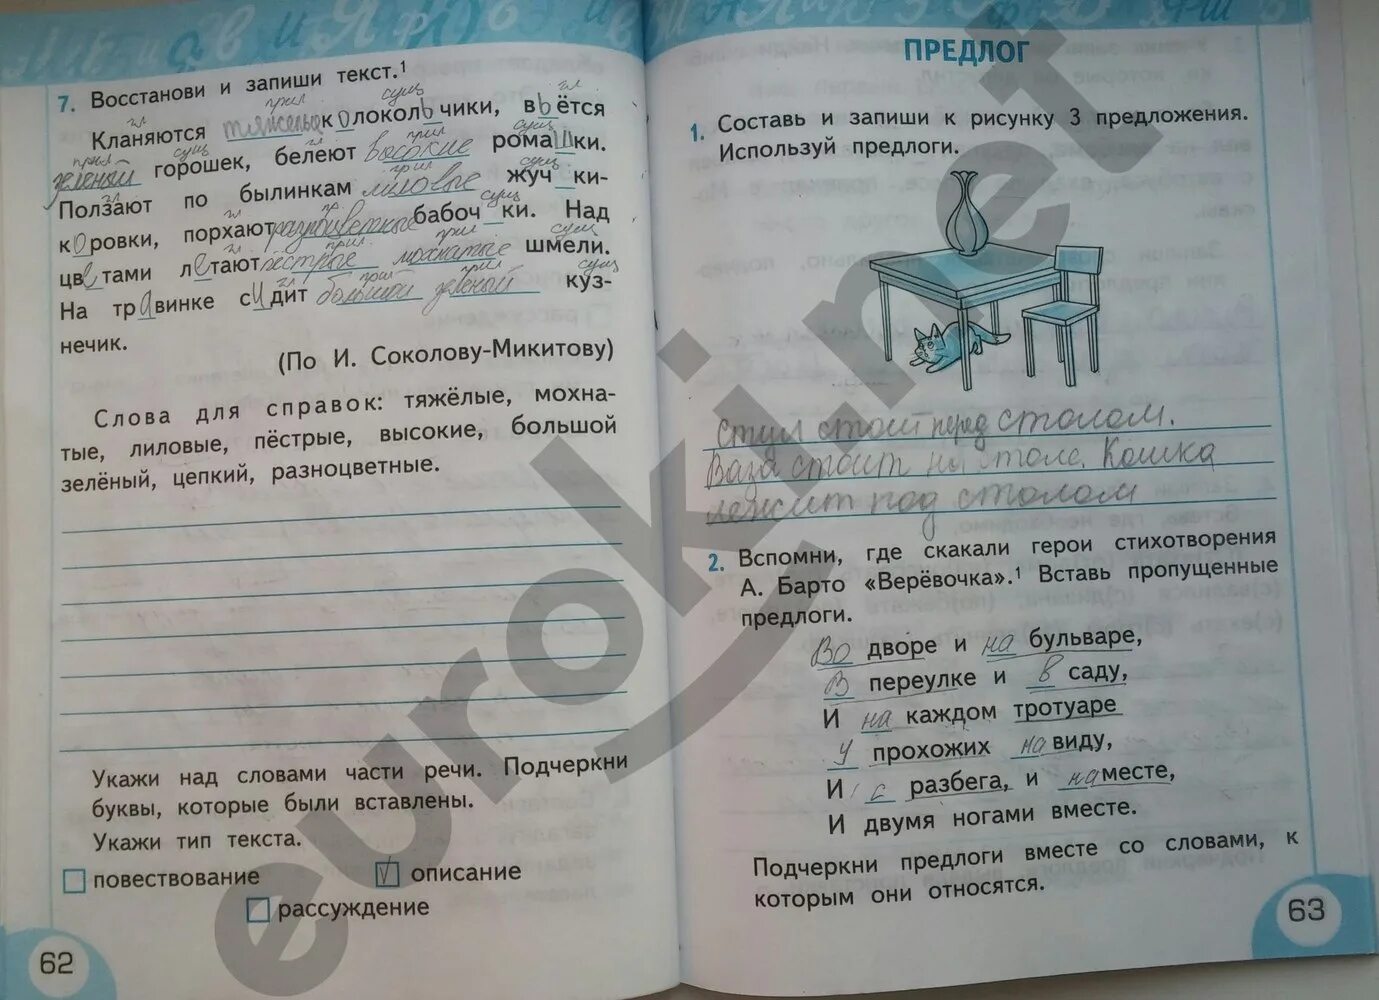 7. Восстанови и запиши текст.¹
прил сущ гл
Кланяются тяжелые колокольчики, вьётся
прил сущ гл прил сущ
зеленый горошек, белеют высокие ромашки.
гл прил сущ
Ползают по былинкам лиловые жуч_ки-
гл пр. сущ
коровки, порхают разноцветные бабоч_ки. Над
гл прил прил сущ
цветами летают пестрые мохнатые шмели.
гл прил прил сущ
На травинке сидит большой зеленый куз-
нечик.
(По И. Соколову-Микитову)
Слова для справок: тяжёлые, мохна-
тые, лиловые, пёстрые, высокие, большой
зелёный, цепкий, разноцветные.
Укажи над словами части речи. Подчеркни
буквы, которые были вставлены.
Укажи тип текста.
повествование
описание
рассуждение
62
ПРЕДЛОГ
1. Составь и запиши к рисунку 3 предложения.
Используй предлоги.
Стул стоит перед столом.
Ваза стоит на столе. Кошка
лежит под столом
2. Вспомни, где скакали герои стихотворения
А. Барто «Верёвочка».¹ Вставь пропущенные
предлоги.
Во дворе и на бульваре,
В переулке и в саду,
И на каждом тротуаре
У прохожих на виду,
И с разбега, и на месте,
И двумя ногами вместе.
Подчеркни предлоги вместе со словами, к
которым они относятся.
63
euroki.net